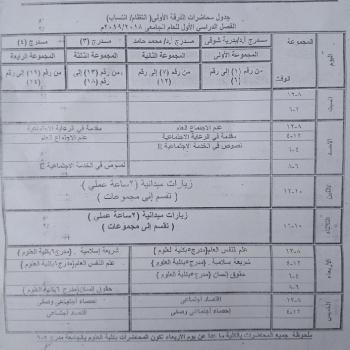 جدول محاضرات الفرقة الأولى( انتظام/ انتساب)
الفصل الدراسي الأول للعام الجامعي ٢٠١٩/٢٠١٨م
المجموعة
اليوم
الوقت
مدرج أ.د/بدرية شوقي
المجموعة الأولى
من رقم (١) إلى رقم
مدرج أ.د/ محمد حامد
المجموعة الثانية
من رقم (٧) إلى رقم (١٢)
مدرج (٣)
المجموعة الثالثة
من رقم (١٣) إلى رقم (١٨)
مدرج (٤)
المجموعة الرابعة
من رقم (١٩) إلى رقم
السبت
الأحد
٨-١٢
علم الاجتماع العام
مقدمة في الرعاية الاجتماعية
مقدمة في الرعاية الاجتماعية
علم الاجتماع العام
نصوص في الخدمة الاجتماعية E
نصوص في الخدمة الاجتماعية E
الاثنين
١٠-١٢
زيارات ميدانية (٢ساعة عملي )
( تقسم إلى مجموعات )
الثلاثاء
زيارات ميدانية (٢ساعة عملي )
( تقسم إلى مجموعات )
الأربعاء
علم النفس العام(مدرج٥بكلية العلوم )
شريعة إسلامية . (مدرج٦بكلية العلوم )
شريعة إسلامية .
علم النفس العام(مدرج٦بكلية العلوم )
حقوق إنسان (مدرج٥بكلية العلوم )
حقوق إنسان(مدرج٦بكلية العلوم )
الخميس
اقتصاد اجتماعي
إحصاء اجتماعي وصفي
إحصاء اجتماعي وصفي
اقتصاد اجتماعي
ملحوظة جميع المحاضرات بالكلية ما عدا يوم الأربعاء تكون المحاضرات بكلية العلوم بالجامعة مدرج